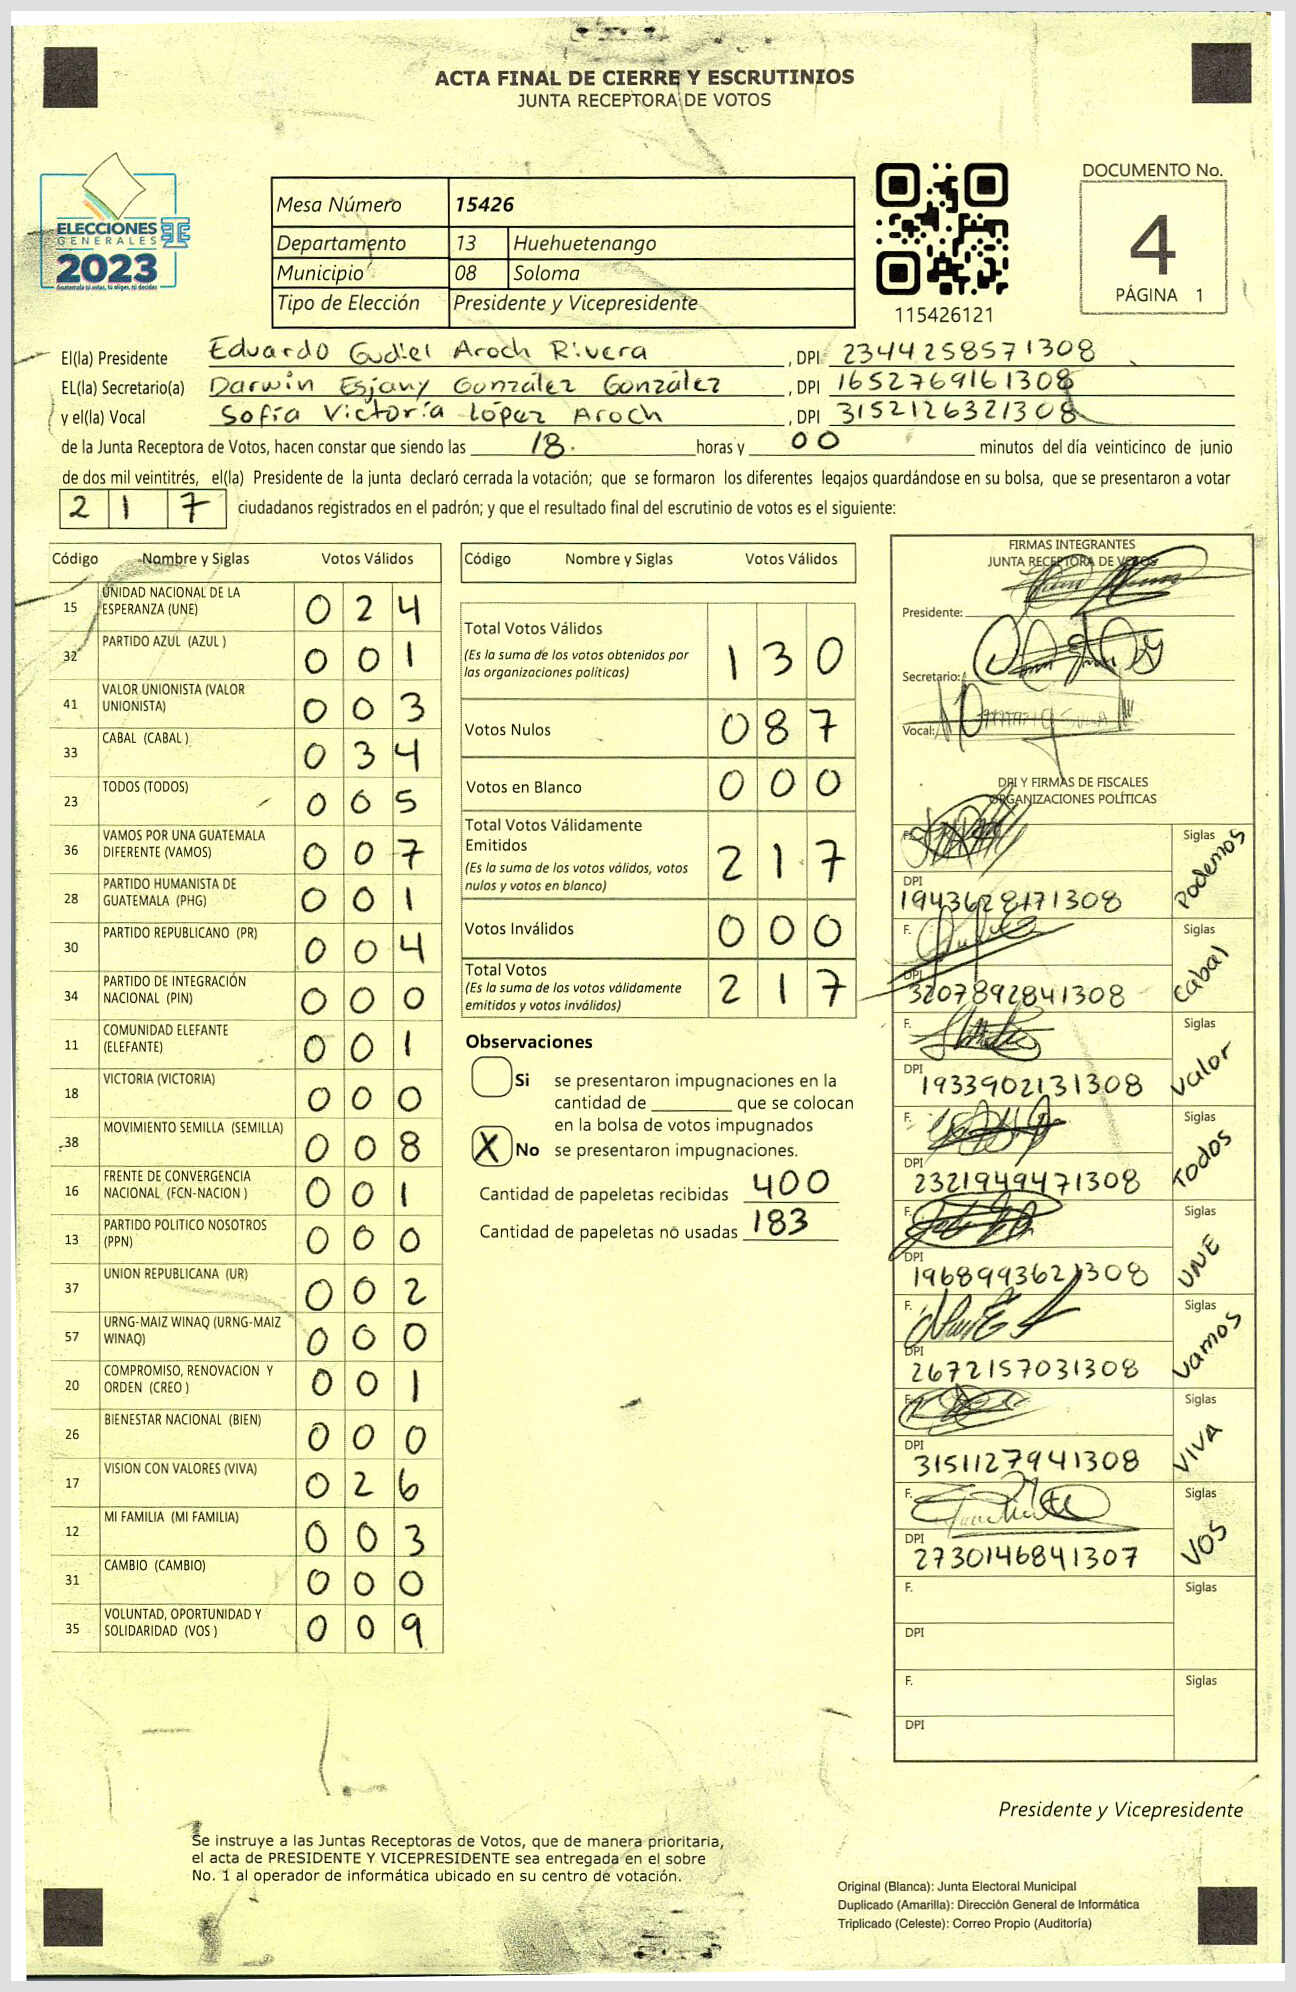 ACTA FINAL DE CIERRE Y ESCRUTINIOS
JUNTA RECEPTORA DE VOTOS
ELECCIONES
GENERALES
2023
Guatemala tú votas, tú eliges, tú decides
Mesa Número 15426
Departamento 13 Huehuetenango
Municipio 08 Soloma
Tipo de Elección Presidente y Vicepresidente
115426121
DOCUMENTO No.
4
PÁGINA 1
El(la) Presidente Eduardo Gudiel Aroch Rivera , DPI 2344258571308
EL(la) Secretario(a) Darwin Esjany González González , DPI 1652769161308
y el(la) Vocal Sofía Victoria López Aroch , DPI 3152126321308
de la Junta Receptora de Votos, hacen constar que siendo las 18. horas y 00 minutos del día veinticinco de junio
de dos mil veintitrés, el(la) Presidente de la junta declaró cerrada la votación; que se formaron los diferentes legajos guardándose en su bolsa, que se presentaron a votar
2 1 7 ciudadanos registrados en el padrón; y que el resultado final del escrutinio de votos es el siguiente:
Código Nombre y Siglas Votos Válidos
15 UNIDAD NACIONAL DE LA
ESPERANZA (UNE) 0 2 4
32 PARTIDO AZUL (AZUL ) 0 0 1
41 VALOR UNIONISTA (VALOR
UNIONISTA) 0 0 3
33 CABAL (CABAL ) 0 3 4
23 TODOS (TODOS) 0 0 5
36 VAMOS POR UNA GUATEMALA
DIFERENTE (VAMOS) 0 0 7
28 PARTIDO HUMANISTA DE
GUATEMALA (PHG) 0 0 1
30 PARTIDO REPUBLICANO (PR) 0 0 4
34 PARTIDO DE INTEGRACIÓN
NACIONAL (PIN) 0 0 0
11 COMUNIDAD ELEFANTE
(ELEFANTE) 0 0 1
18 VICTORIA (VICTORIA) 0 0 0
38 MOVIMIENTO SEMILLA (SEMILLA) 0 0 8
16 FRENTE DE CONVERGENCIA
NACIONAL (FCN-NACION ) 0 0 1
13 PARTIDO POLITICO NOSOTROS
(PPN) 0 0 0
37 UNION REPUBLICANA (UR) 0 0 2
57 URNG-MAIZ WINAQ (URNG-MAIZ
WINAQ) 0 0 0
20 COMPROMISO, RENOVACION Y
ORDEN (CREO ) 0 0 1
26 BIENESTAR NACIONAL (BIEN) 0 0 0
17 VISION CON VALORES (VIVA) 0 2 6
12 MI FAMILIA (MI FAMILIA) 0 0 3
31 CAMBIO (CAMBIO) 0 0 0
35 VOLUNTAD, OPORTUNIDAD Y
SOLIDARIDAD (VOS ) 0 0 9
Código Nombre y Siglas Votos Válidos
Total Votos Válidos
(Es la suma de los votos obtenidos por
las organizaciones políticas) 1 3 0
Votos Nulos 0 8 7
Votos en Blanco 0 0 0
Total Votos Válidamente
Emitidos
(Es la suma de los votos válidos, votos
nulos y votos en blanco) 2 1 7
Votos Inválidos 0 0 0
Total Votos
(Es la suma de los votos válidamente
emitidos y votos inválidos) 2 1 7
Observaciones
Si se presentaron impugnaciones en la
cantidad de ________ que se colocan
en la bolsa de votos impugnados
X No se presentaron impugnaciones.
Cantidad de papeletas recibidas 400
Cantidad de papeletas no usadas 183
FIRMAS INTEGRANTES
JUNTA RECEPTORA DE VOTOS
Presidente:
Secretario:
Vocal:
DPI Y FIRMAS DE FISCALES
ORGANIZACIONES POLÍTICAS
F. Siglas Podemos
DPI 1943628171308
F. Siglas Cabal
DPI 3207892841308
F. Siglas Valor
DPI 1933902131308
F. Siglas Todos
DPI 2321949471308
F. Siglas UNE
DPI 1968993621308
F. Siglas Vamos
DPI 2672157031308
F. Siglas VIVA
DPI 3151127941308
F. Siglas VOS
DPI 2730146841307
F. Siglas
DPI
F. Siglas
DPI
Presidente y Vicepresidente
Se instruye a las Juntas Receptoras de Votos, que de manera prioritaria,
el acta de PRESIDENTE Y VICEPRESIDENTE sea entregada en el sobre
No. 1 al operador de informática ubicado en su centro de votación.
Original (Blanca): Junta Electoral Municipal
Duplicado (Amarilla): Dirección General de Informática
Triplicado (Celeste): Correo Propio (Auditoría)